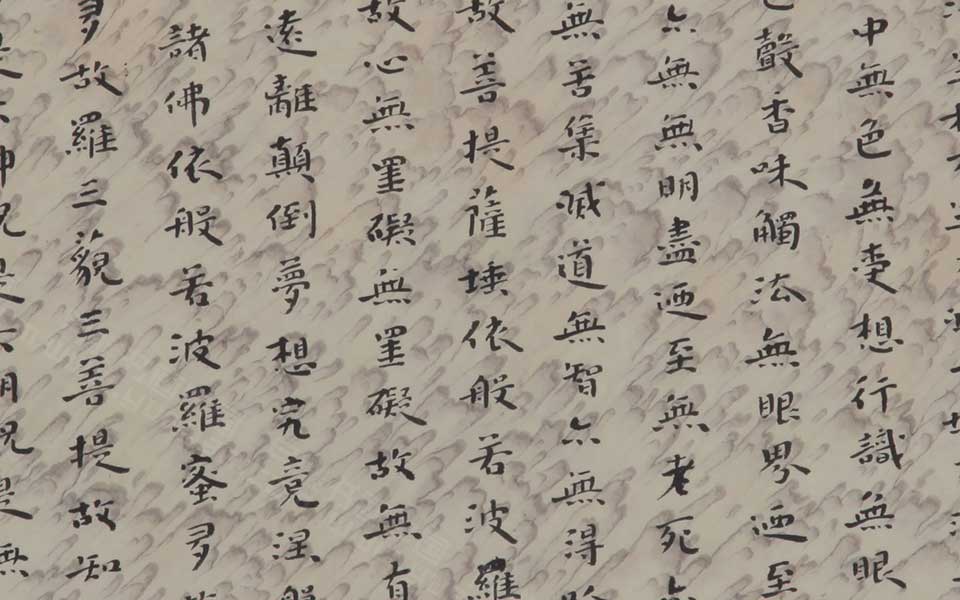 中無色無受想行識無眼
聲香味觸法無眼界迺至
亦無無明盡迺至無老死亦
無苦集滅道無智亦無得
故菩提薩埵依般若波羅
故心無罣礙無罣礙故無有
遠離顛倒夢想究竟涅般
諸佛依般若波羅蜜多
多故羅三藐三菩提故知
是大神咒是大明咒是無